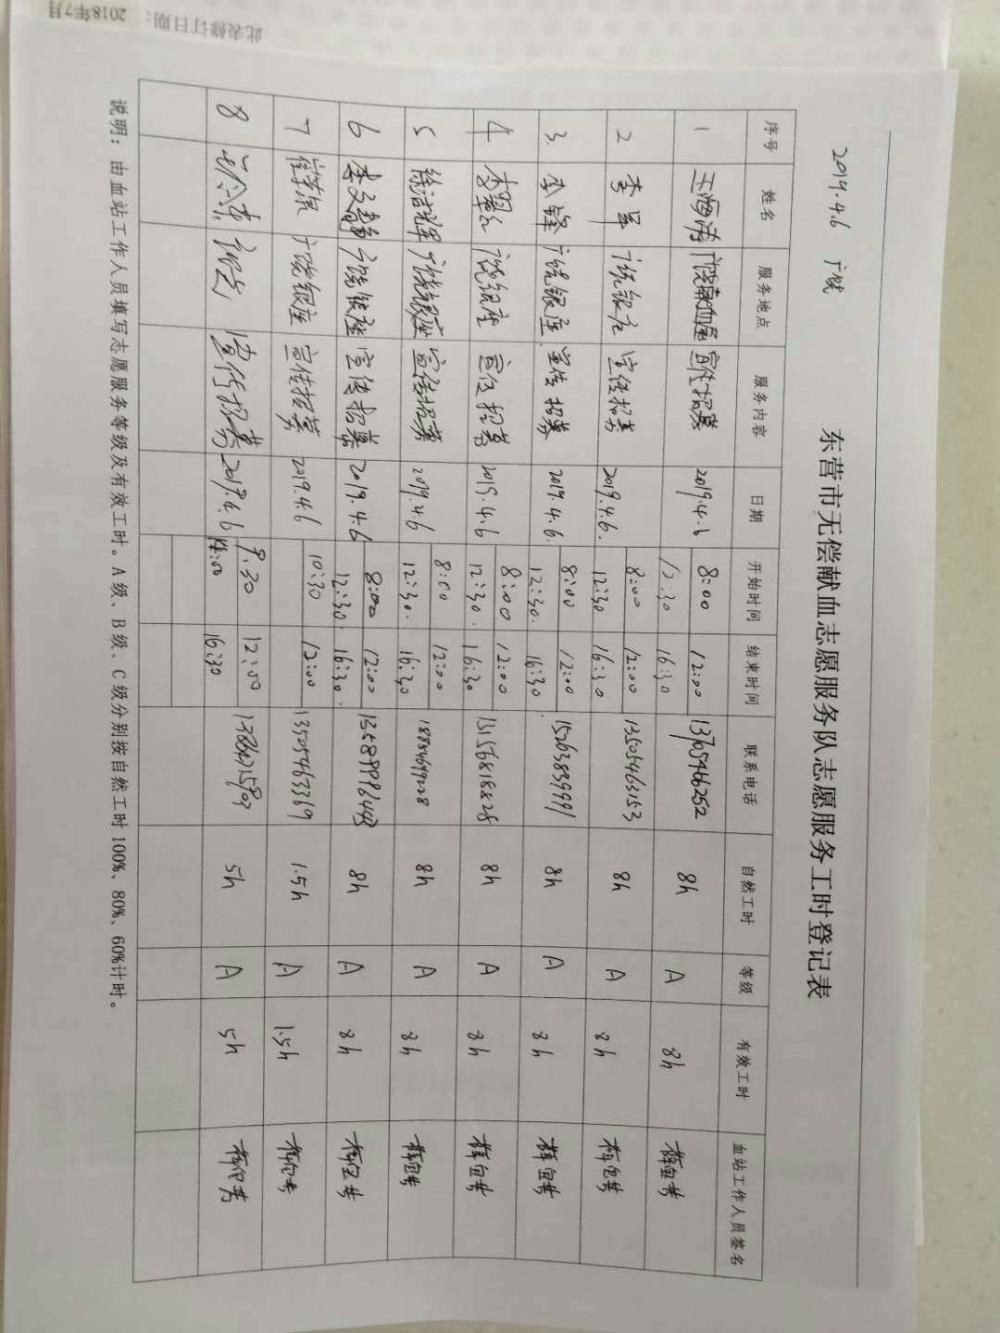 此表修订日期：2018年7月
2019.4.6 广饶
东营市无偿献血志愿服务队志愿服务工时登记表
序号 姓名 服务地点 服务内容 日期 开始时间 结束时间 联系电话 自然工时 等级 有效工时 血站工作人员签名
1 王海涛 广饶献血屋 宣传招募 8:00 12:00 13705466252 8h A 8h
12:30 16:30
2 李军 广饶银座 宣传招募 2019.4.6. 8:00 12:00 13505463153 8h A 8h
12:30 16:30
3. 李锋 广饶银座 宣传招募 2019.4.6. 8:00 12:00 15263839991 8h A 8h
12:30. 16:30
4 李翠红 广饶银座 宣传招募 2019.4.6 8:00 12:00 13156818828 8h A 8h
12:30. 16:30
5 徐洁辉 广饶银座 宣传招募 2019.4.6 8:00 12:00 8h A 8h
12:30. 16:30
6 李文静 广饶银座 宣传招募 2019.4.6 8:00 12:00 8h A 8h
12:30. 16:30.
7 广饶银座 宣传招募 2019.4.6 10:30 12:00 13505463369 1.5h A 1.5h
8 宣传招募 2019.4.6 9.30 12:00 5h A 5h
16:30
说明：由血站工作人员填写志愿服务等级及有效工时。A级、B级、C级分别按自然工时100%、80%、60%计时。